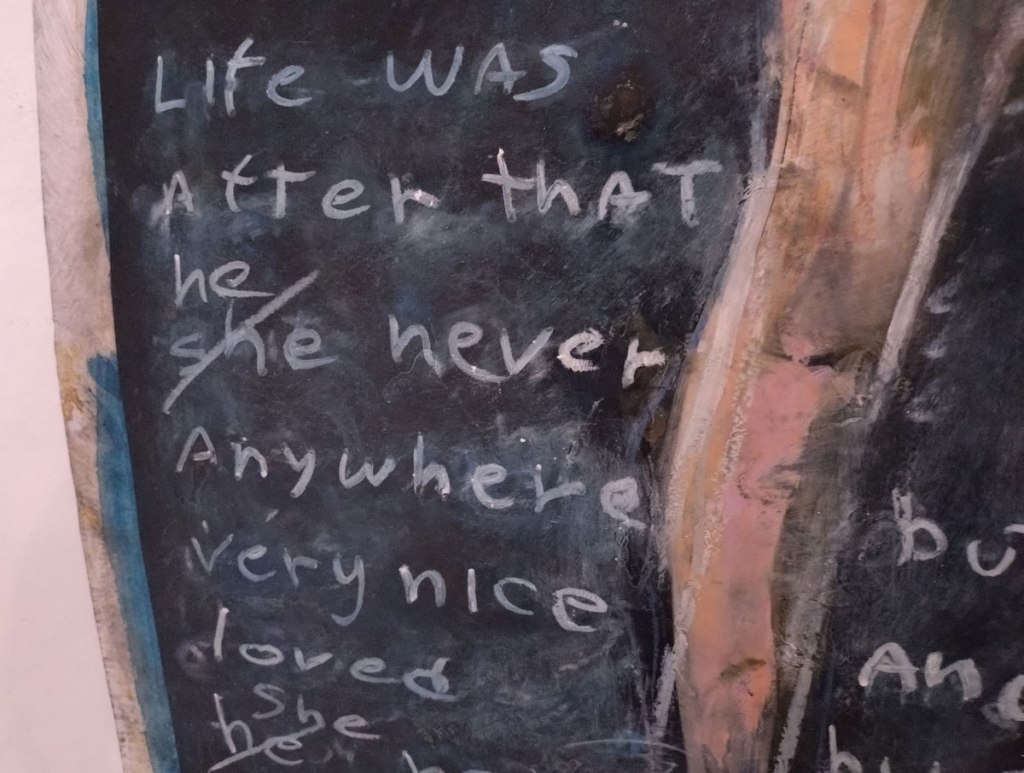 Life WAS
After thAT
he
she never
Anywhere
very nice
loved
she
he
but
And